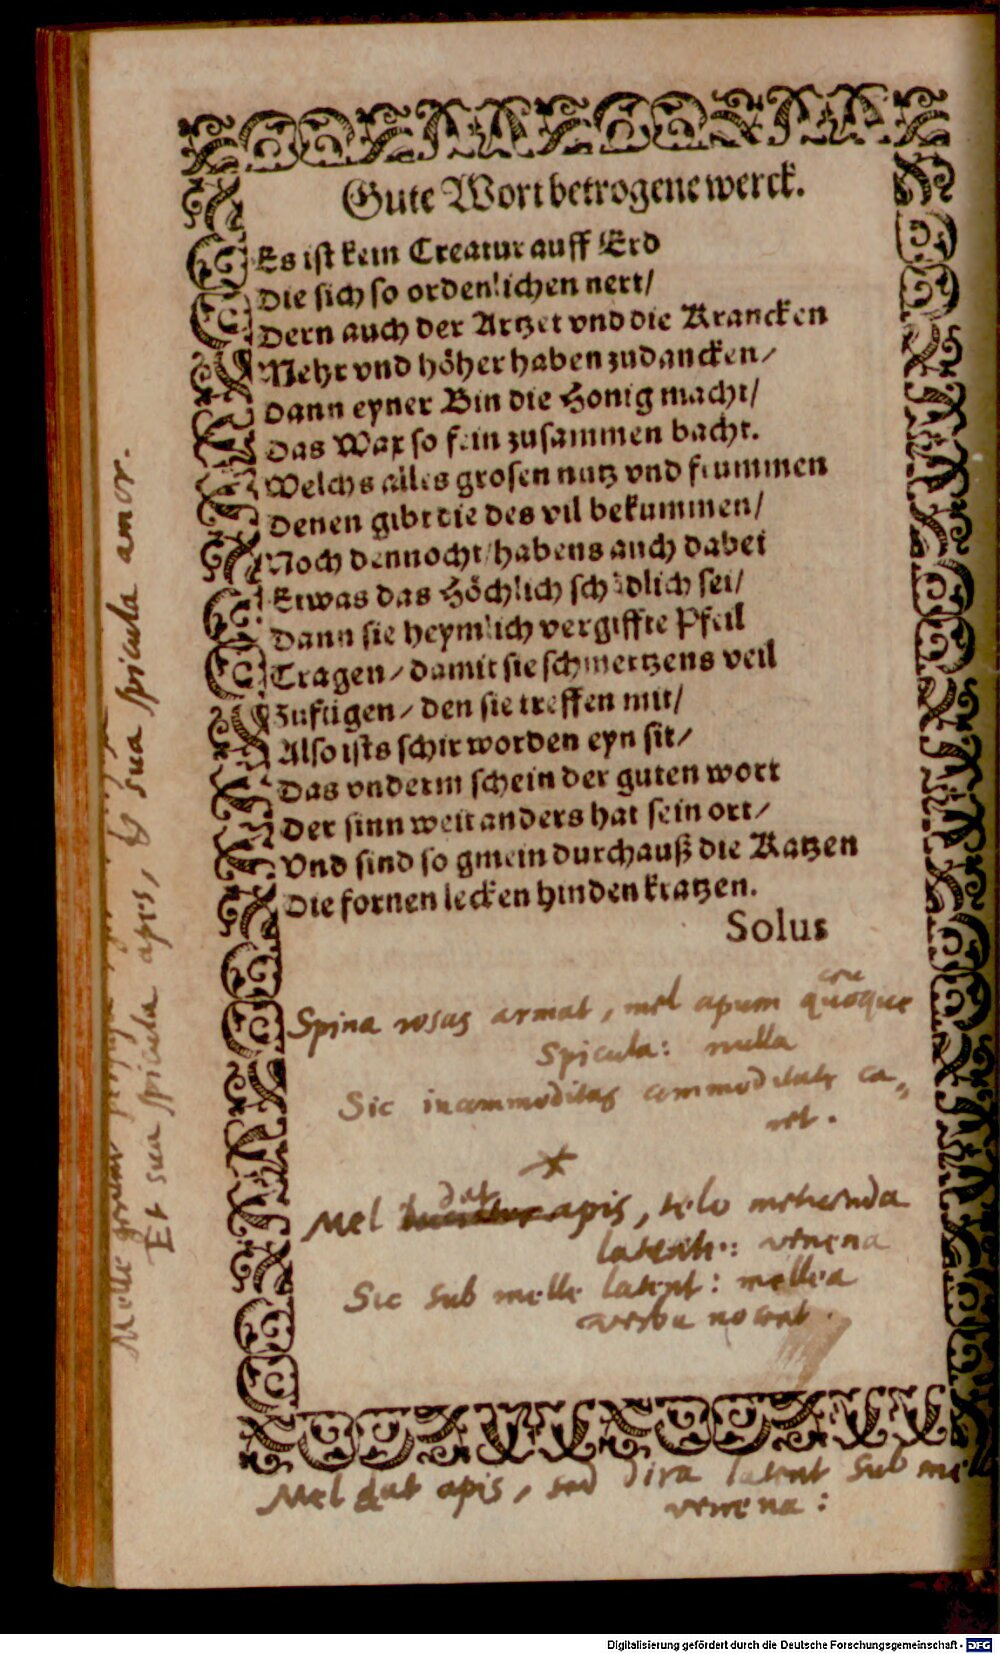 Gute Wort betrogene werck.
Es ist kein Creatur auff Erd
Die sich so ordenlichen nert/
Dern auch der Artzet vnd die Krancken
Mehr vnd höher haben zudancken/
Dann eyner Bin die Honig macht/
Das Wax so fein zusammen bacht.
Welchs alles grosen nutz vnd frummen
Denen gibt die des vil bekummen/
Noch dennocht/habens auch dabei
Etwas das Höchlich schädlich sei/
Dann sie heymlich vergiffte Pfeil
Tragen/damit sie schmertzens veil
Zufügen/den sie treffen mit/
Also ists schir worden eyn sit/
Das vnderm schein der guten wort
Der sinn weit anders hat sein ort/
Vnd sind so gmein durchauß die Katzen
Die fornen lecken hinden kratzen.
Solus
Spina rosas armat, mel apum quoque
spicula: nulla
Sic incommoditas commoditate ca„
ret.
Mel dat apis, telo metuenda
latente: venena
Sic sub melle latent: mellea
verba nocent.
Mel dat apis, sed dira latent sub
venena:
Melle
Et sua spicula apes, & sua spicula amor.
Digitalisierung gefördert durch die Deutsche Forschungsgemeinschaft - DFG